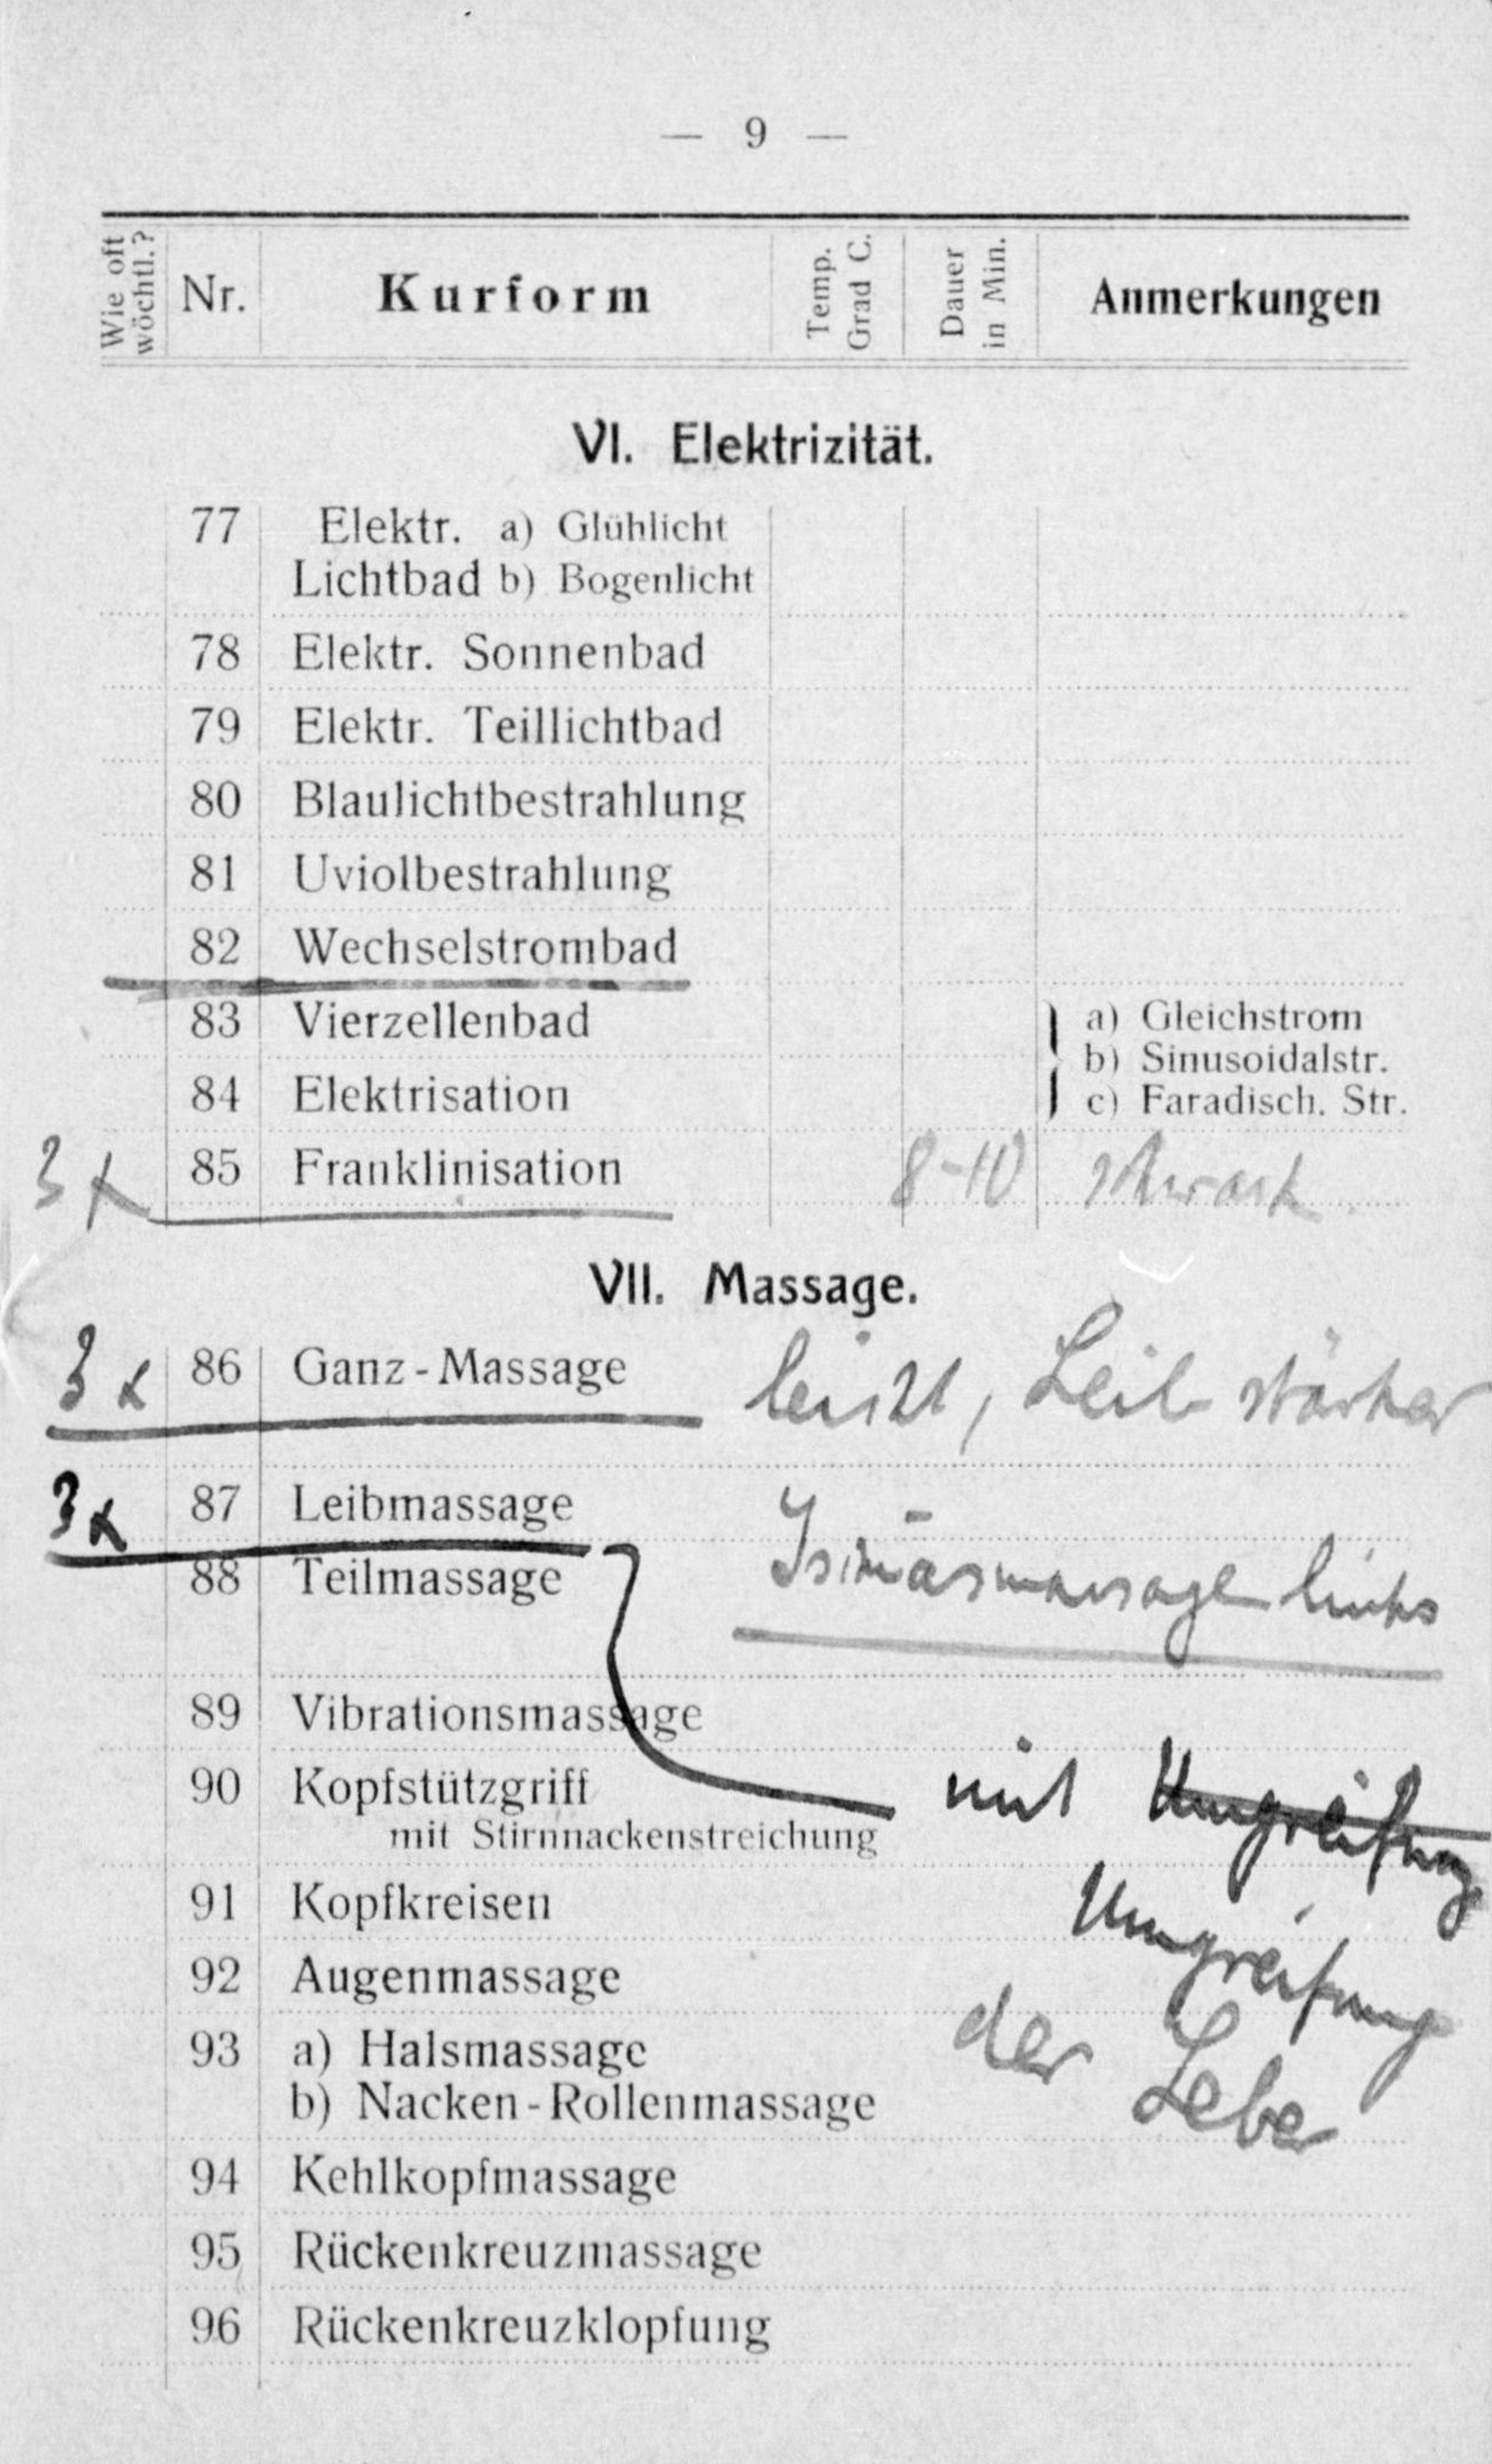 — 9 —
Wie oft wöchtl.? Nr. Kurform Temp. Grad C. Dauer in Min. Anmerkungen
VI. Elektrizität.
77 Elektr. a) Glühlicht
Lichtbad b) Bogenlicht
78 Elektr. Sonnenbad
79 Elektr. Teillichtbad
80 Blaulichtbestrahlung
81 Uviolbestrahlung
82 Wechselstrombad
83 Vierzellenbad a) Gleichstrom
b) Sinusoidalstr.
84 Elektrisation c) Faradisch. Str.
3 x 85 Franklinisation 8-10
VII. Massage.
3 x 86 Ganz-Massage leicht, Leib stärker
3 x 87 Leibmassage
88 Teilmassage links
89 Vibrationsmassage
90 Kopfstützgriff mit Umgreifung
mit Stirnnackenstreichung
91 Kopfkreisen Umgreifung
92 Augenmassage
93 a) Halsmassage der Leber
b) Nacken-Rollenmassage
94 Kehlkopfmassage
95 Rückenkreuzmassage
96 Rückenkreuzklopfung